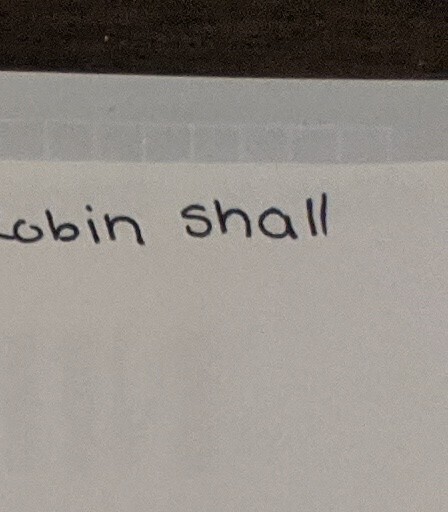 obin shall